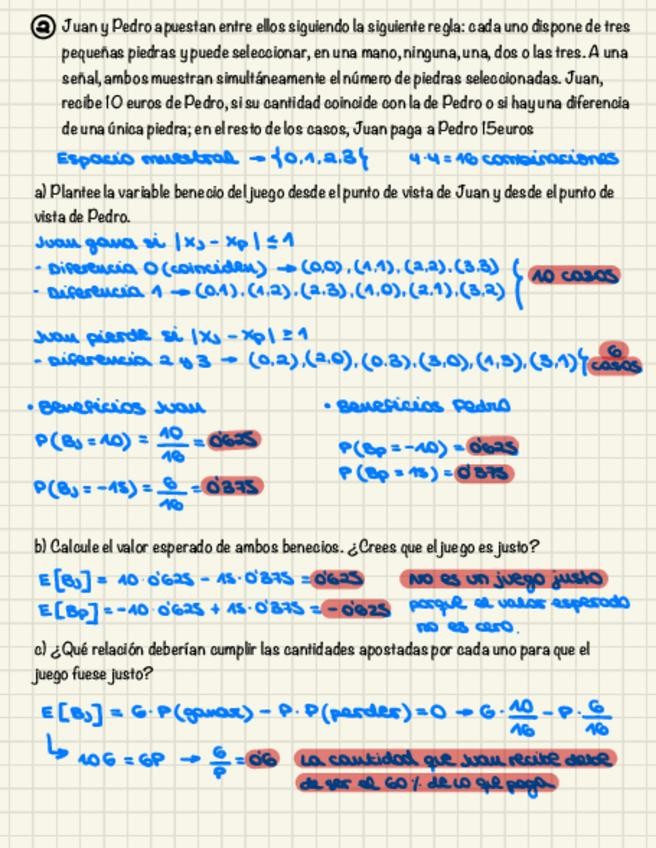 a Juan y Pedro apuestan entre ellos siguiendo la siguiente regla: cada uno dispone de tres
pequeñas piedras y puede seleccionar, en una mano, ninguna, una, dos o las tres. A una
señal, ambos muestran simultáneamente el número de piedras seleccionadas. Juan,
recibe 10 euros de Pedro, si su cantidad coincide con la de Pedro o si hay una diferencia
de una única piedra; en el resto de los casos, Juan paga a Pedro 15euros
Espacio muestral → {0,1,2,3} 4·4=16 combinaciones
a) Plantee la variable benecio del juego desde el punto de vista de Juan y desde el punto de
vista de Pedro.
Juan gana si |xJ - xp| ≤ 1
- Diferencia 0 (coinciden) → (0,0), (1,1), (2,2), (3,3)
- Diferencia 1 → (0,1), (1,2), (2,3), (1,0), (2,1), (3,2)
10 casos
Juan pierde si |xJ - xp| ≥ 1
- Diferencia 2 y 3 → (0,2), (2,0), (0,3), (3,0), (1,3), (3,1) 6 casos
• Beneficios Juan
P(BJ = 10) = 10/16 = 0'625
P(BJ = -15) = 6/16 = 0'375
• Beneficios Pedro
P(Bp = -10) = 0'625
P(Bp = 15) = 0'375
b) Calcule el valor esperado de ambos benecios. ¿Crees que el juego es justo?
E[BJ] = 10·0'625 - 15·0'375 = 0'625 No es un juego justo
E[Bp] = -10·0'625 + 15·0'375 = -0'625 porque el valor esperado
no es cero.
c) ¿Qué relación deberían cumplir las cantidades apostadas por cada uno para que el
juego fuese justo?
E[BJ] = G·P(ganar) - P·P(perder) = 0 → G·10/16 - P·6/16
↳ 10G = 6P → G/P = 0'6 La cantidad que Juan recibe debe
de ser el 60% de lo que paga